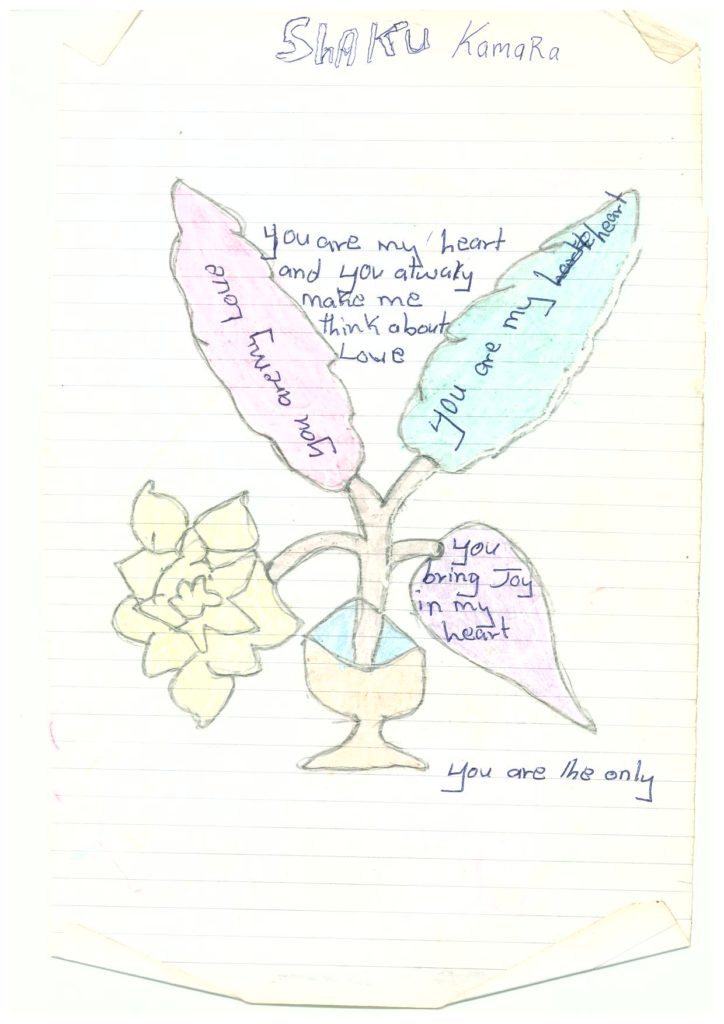 SHAKU KamaRa
you are my heart
and you atwaky
make me
think about
Love
you are my Love
you are my heart
you
bring Joy
in my
heart
you are the only